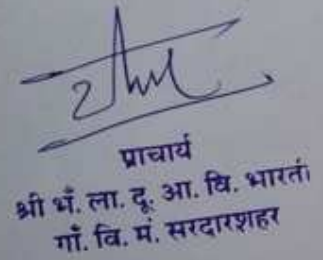 प्राचार्य
श्री भँ. ला. दू. आ. वि. भारती
गाँ. वि. मं. सरदारशहर